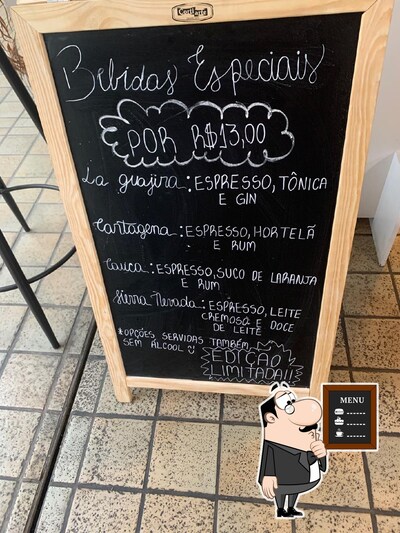 Confrarte
Bebidas Especiais
POR R$13,00
La guajira: ESPRESSO, TÔNICA
E GIN
Cartagena: ESPRESSO, HORTELÃ
E RUM
Cauca: ESPRESSO, SUCO DE LARANJA
E RUM
Sierra Nevada: ESPRESSO, LEITE
CREMOSO E DOCE
DE LEITE
*OPÇÕES SERVIDAS TAMBÉM
SEM ÁLCOOL
EDIÇÃO
LIMITADA!!
MENU